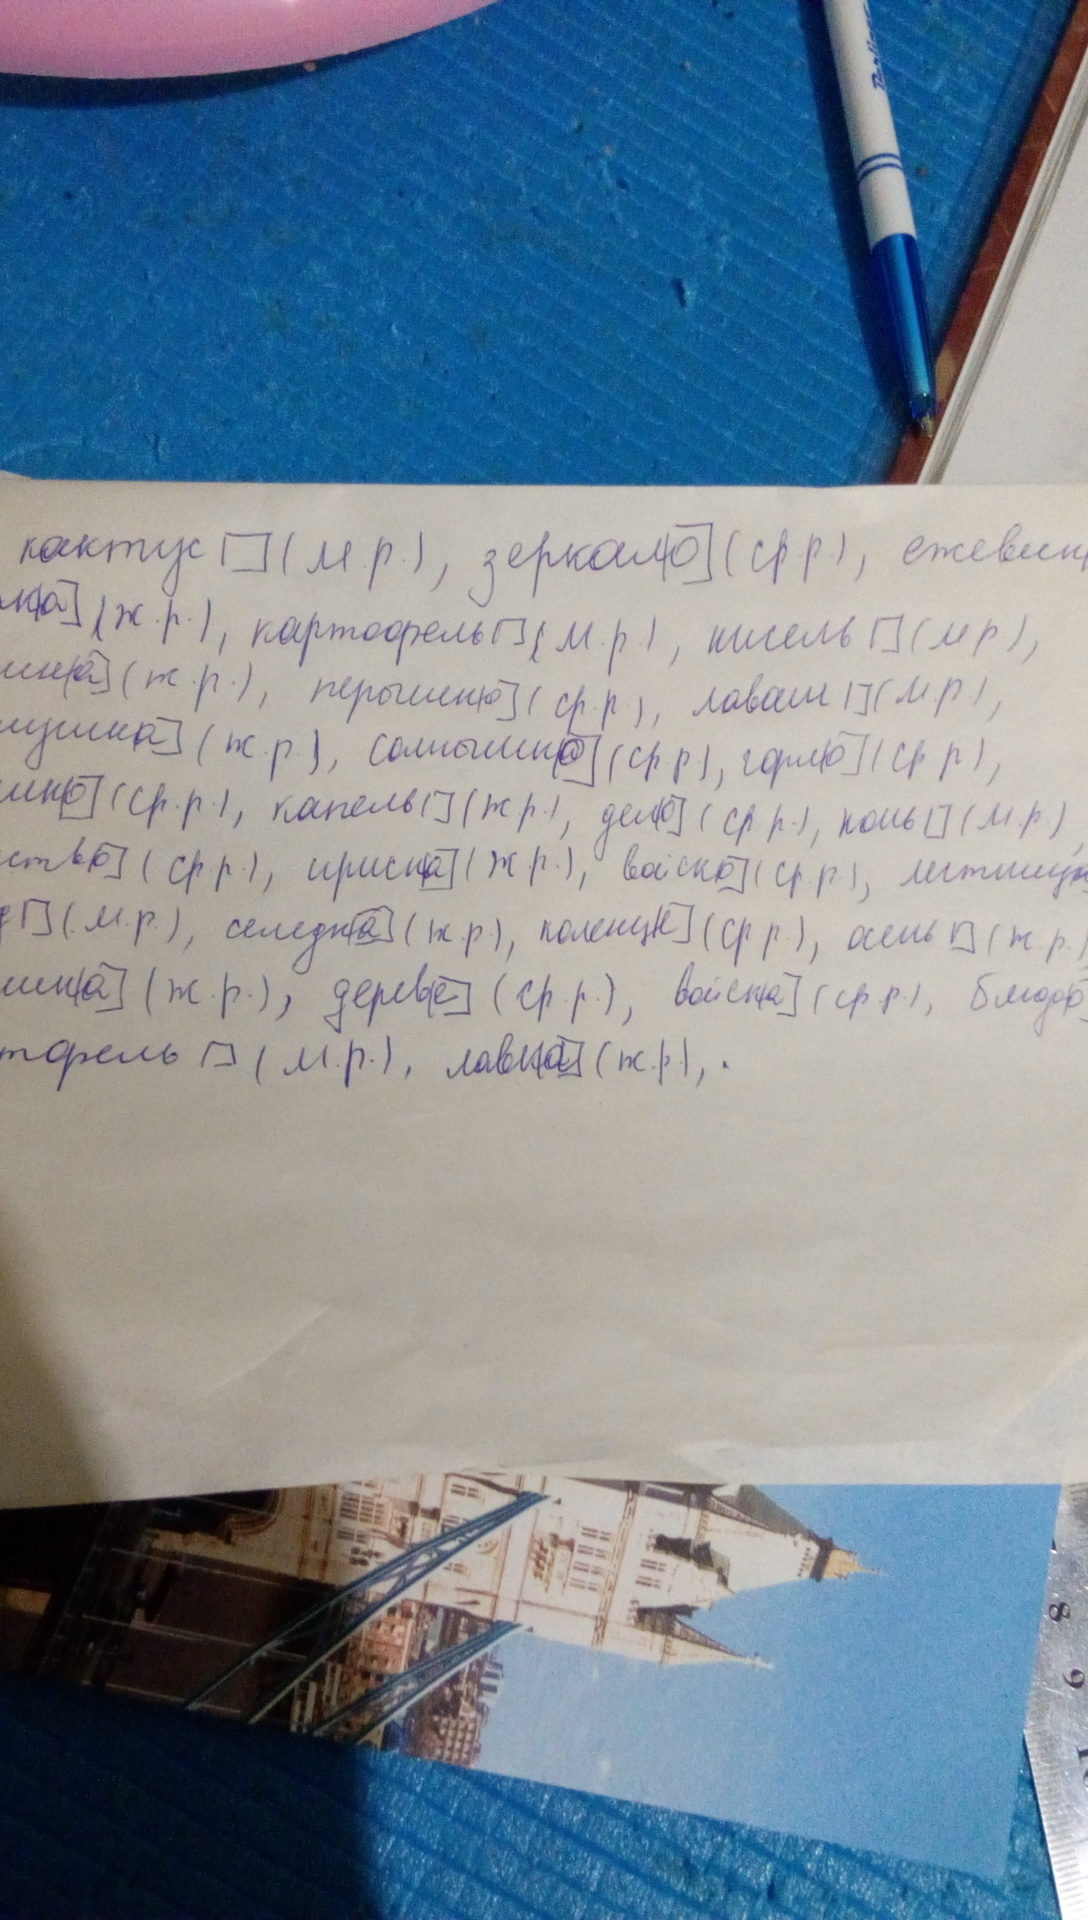 кактус□ (м.р.), зеркало (ср.р), ежевик
(ж.р.), картофель□ (м.р.), кисель□ (м.р),
(ж.р.), пёрышко (ср.р), лаваш□ (м.р),
(ж.р), солнышко (ср.р), горло (ср.р),
(ср.р.), капель□ (ж.р), дело (ср.р.), конь□ (м.р),
ство (ср.р), ириска (ж.р.), войско (ср.р),
□ (м.р.), селедка (ж.р), коленце (ср.р.), осень□ (ж.р.)
(ж.р.), дерево (ср.р.), войска (ср.р), блюдо
тофель□ (м.р.), лавка (ж.р), .
8
9
10